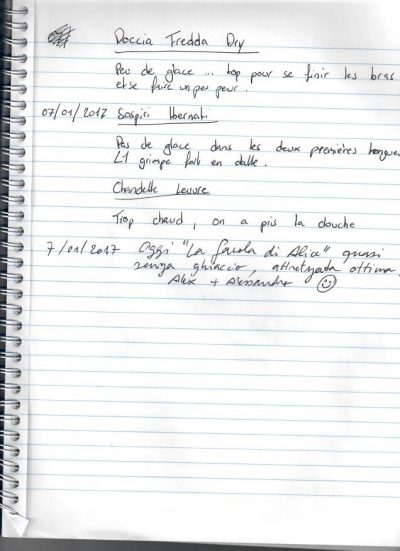 Doccia Fredda Dry
Peu de glace ... top pour se finir les bras
et se faire un peu peur.
07/01/2017 Sospiri Ibernati
Pas de glace dans les deux premières longueurs
L1 grimpe fait en dalle.
Chandelle Levure
Trop chaud, on a pris la douche
7/01/2017 Oggi "La favola di Alice" quasi
senza ghiaccio, attrezzata ottima.
Alex + Alessandro